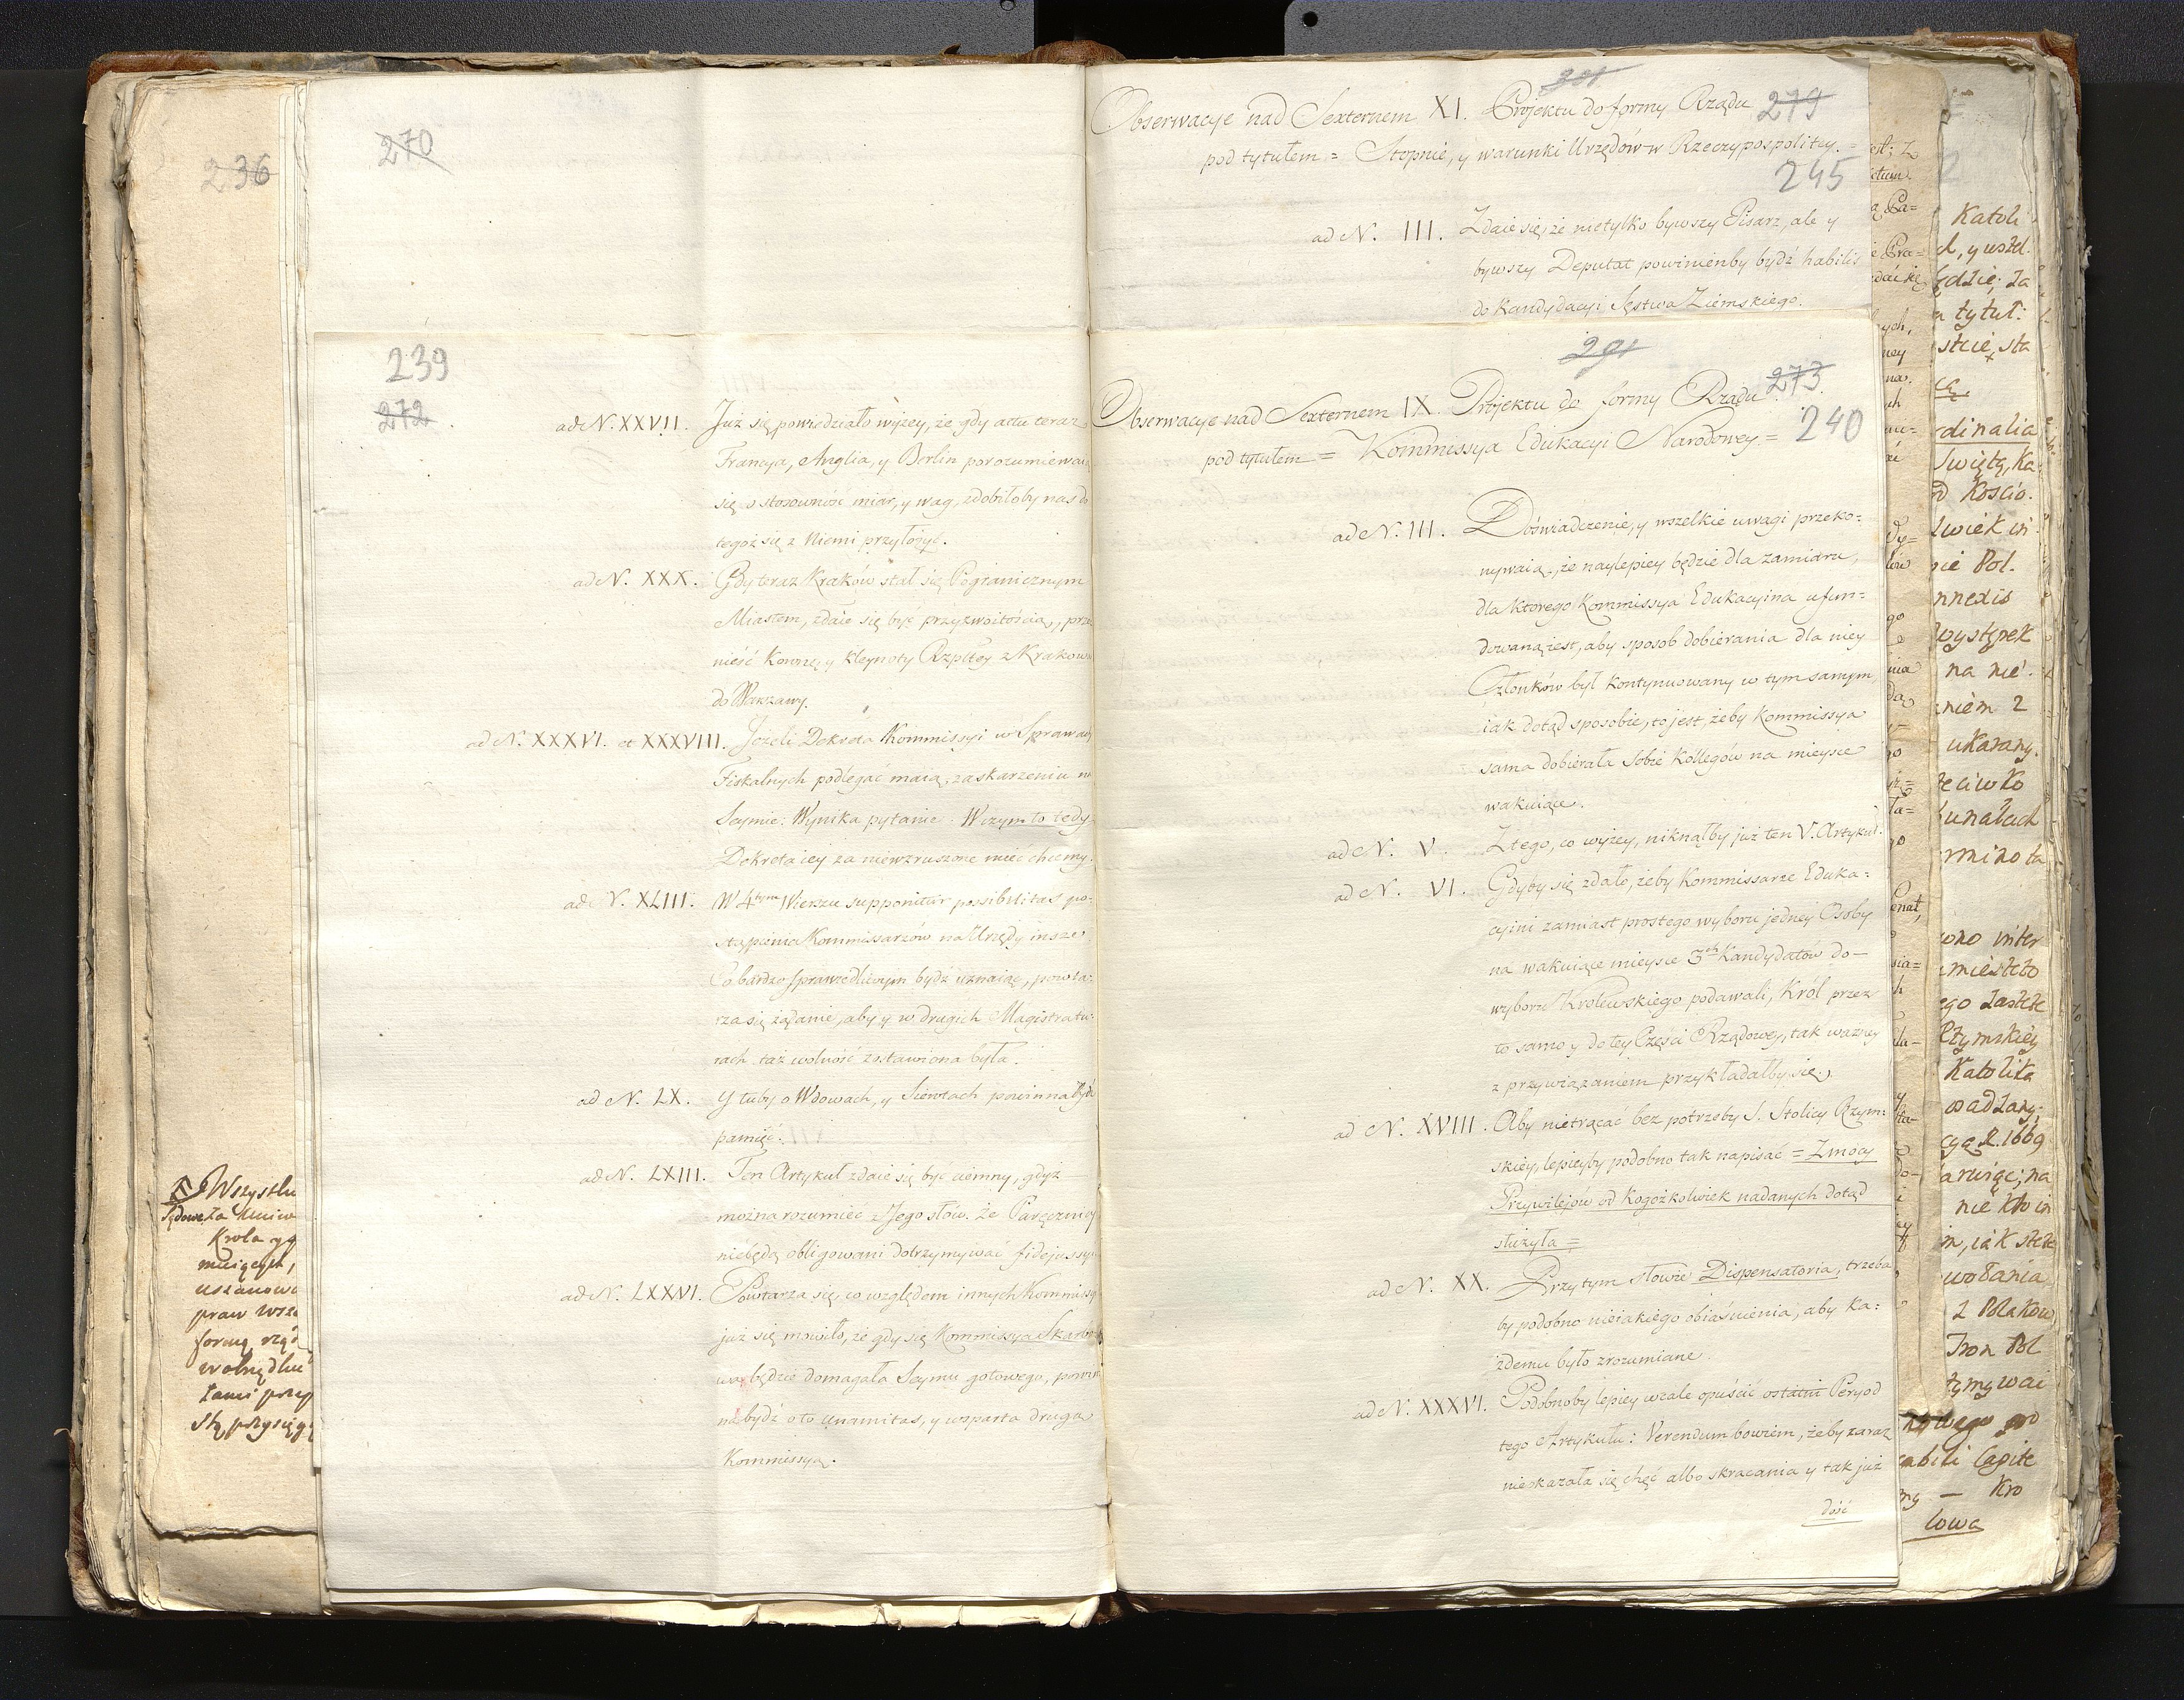 236
270
239
272
ad N. XXVII. Już się powiedziało wyżey, że gdy actu teraz
Francya, Anglia, y Berlin porozumiewaią
się o stosowność miar, y wag, zdobiłoby nas do
tegoż się z Niemi przyłożyć.
ad N. XXX. Gdy teraz Kraków stał się Pogranicznym
Miastem, zdaie się być przyzwoitością, prze
nieść Koronę y Kleynoty Rzpltey z Krakowa
do Warszawy.
ad N. XXXVI. et XXXVIII. Jeżeli Dekreta Kommissyi w Sprawach
Fiskalnych podlegać maią, zaskarzeniu na
Seymie: Wynika pytanie. W czym to tedy
Dekreta iey za niewzruszone mieć chcemy.
ad N. XLIII. W 4tym Wierszu supponitur possibilitas po-
stąpienia Kommissarzów na Urzędy insze
Co bardzo sprawiedliwym bydź uznaiąc, powta-
rza się żądanie, aby y w drugich Magistratu-
rach taż wolność zostawiona była.
ad N. LX. Y tuby o Wdowach, y Sierotach powinna bydź
pamięć.
ad N. LXIII. Ten Artykuł zdaie się być ciemny, gdyż
można rozumieć z Jego słów. że Paręcznicy
niebędą obligowani dotrzymywać fidejussyi
ad N. LXXVI. Powtarza się, co względem innych Kommissyi
już się mówiło, że gdy się Kommissya Skarbo
wa będzie domagała Seymu gotowego, powin
na bydź o to unanimitas, y wsparta drugą
Kommissyą.
Wszystkie
Krola
291
Obserwacye nad Sexternem XI. Projektu do formy Rządu 279
pod tytułem = Stopnie, y warunki Urzędów w Rzeczypospolitey. =
245
ad N. III. Zdaie się, że nietylko bywszy Pisarz, ale y
bywszy Deputat powinienby bydź habilis
do Kandydacyi Sęstwa Ziemskiego.
291
Obserwacye nad Sexternem IX. Projektu do formy Rządu 273.
pod tytułem = Kommissya Edukacyi Narodowey = 240
ad N. III. Doświadczenie, y wszelkie uwagi przeko-
nywaią, że naylepiey będzie dla zamiaru,
dla ktorego Kommissya Edukacyina ufun-
dowaną iest, aby sposob dobierania dla niey
Członków był kontynuowany w tym samym,
iak dotąd sposobie, to jest, żeby Kommissya
sama dobierała Sobie Kollegów na mieysce
wakuiące.
ad N. V. Z tego, co wyżey, niknąłby już ten V. Artykuł.
ad N. VI. Gdyby się zdało, żeby Kommissarze Eduka-
cyini zamiast prostego wyboru jedney Osoby
na wakuiące mieysce 3ch Kandydatów do
wyboru Krolewskiego podawali, Król przez
to samo y do tey Części Rządowey, tak wazney
z przywiązaniem przykładałby się.
ad N. XVIII. Aby nietrącać bez potrzeby S. Stolicy Rzym-
skiey, lepieyby podobno tak napisać = Z mocy
Przywilejow od Kogożkolwiek nadanych dotąd
służyła =
ad N. XX. Przy tym słowie Dispensatoria, trzeba
by podobno nieiakiego obiaśnienia, aby ka-
żdemu było zrozumiane.
ad N. XXXVI. Podobnoby lepiey wcale opuścić ostatni Peryod
tego Artykułu: Verendum bowiem, żeby zaraz
nieokazała się chęć albo skracania y tak już
dość
Katoli
tytuł:
Święta, Ka-
Kościo.
Pol.
na nie.
ukarany.
inter
Katolika
R. 1669
nie kto in
wołania
z Polakow
Tron Pol
Capite
Kro
lowa